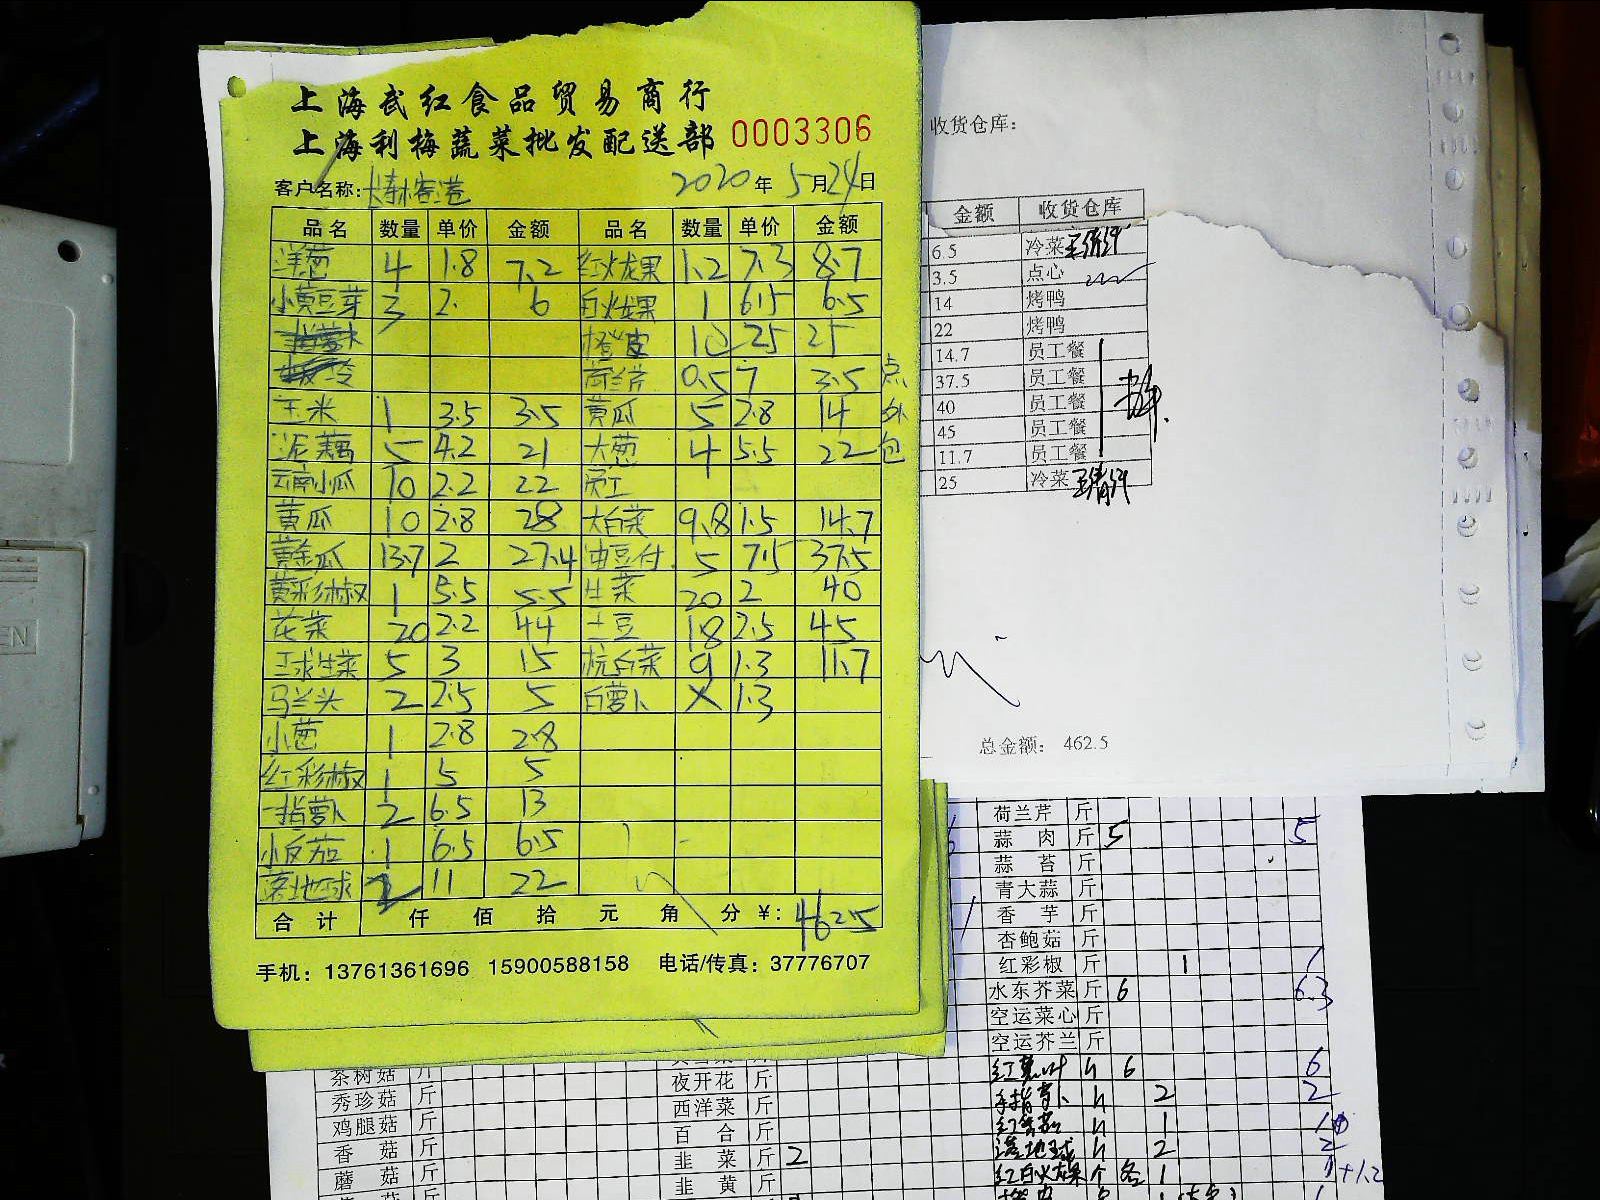 上海武红食品贸易商行
上海利梅蔬菜批发配送部 0003306
客户名称: 2020年5月24日
品名 数量 单价 金额 品名 数量 单价 金额
洋葱 4 1.8 7.2 红火龙果 1.2 7.3 8.7
小黄豆芽 3 2. 6 白火龙果 1 6.5 6.5
25 25
0.5 7 3.5 点
玉米 1 3.5 3.5 黄瓜 5 2.8 14 外
泥藕 5 4.2 21 大葱 4 5.5 22 包
云南小瓜 10 2.2 22 员工
黄瓜 10 2.8 28 大白菜 9.8 1.5 14.7
黄金瓜 13.7 2 27.4 油豆付 5 7.5 37.5
黄彩椒 1 5.5 5.5 生菜 20 2 40
花菜 20 2.2 44 土豆 18 2.5 45
球生菜 5 3 15 杭白菜 9 1.3 11.7
马兰头 2 2.5 5 白萝卜 X 1.3
小葱 1 2.8 2.8
红彩椒 1 5 5
手指萝卜 2 6.5 13
1 6.5 6.5
落地球 2 11 22
合计 仟 佰 拾 元 角 分 ¥: 462.5
手机: 13761361696 15900588158 电话/传真: 37776707
收货仓库:
金额 收货仓库
6.5 冷菜
3.5 点心
14 烤鸭
22 烤鸭
14.7 员工餐
37.5 员工餐
40 员工餐
45 员工餐
11.7 员工餐
25 冷菜
总金额: 462.5
荷兰芹 斤
蒜肉 斤 5 5
蒜苔 斤
青大蒜 斤
香芋 斤
杏鲍菇 斤
红彩椒 斤 1 1
水东芥菜 斤 6 6.3
空运菜心 斤
空运芥兰 斤
6 6
手指萝卜 2 2
1
落地球 2 2
红白火龙果 个 各 1 1+1.2
茶树菇 斤
秀珍菇 斤
鸡腿菇 斤
香菇 斤
蘑菇 斤
夜开花 斤
西洋菜 斤
百合 斤
韭菜 斤 2
韭黄 斤